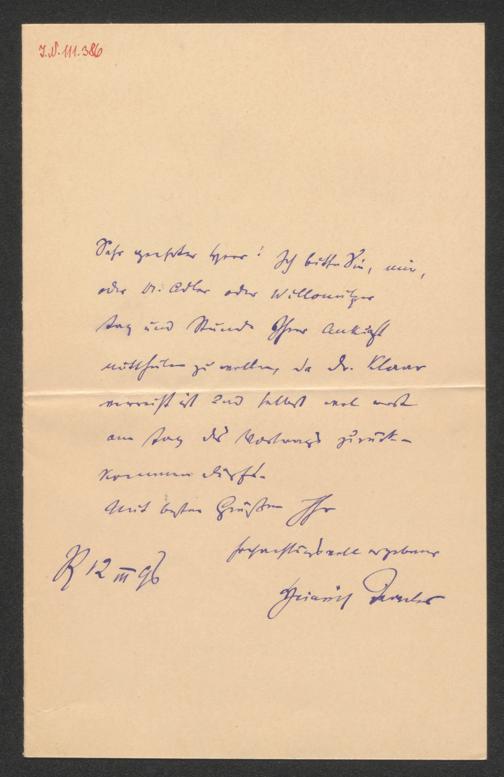 J.N. 111.386
Sehr geehrter Herr! Ich bitte Sie, mir,
oder Dr. Adler oder Willomitzer
Tag und Stunde Ihrer Ankunft
mittheilen zu wollen, da Dr. Klaar
verreist ist und selbst erst
am Tag des Vortrags zurück-
kommen dürfte.
Mit besten Grüßen Ihr
hochachtungsvoll ergebener
12 III 96
Heinrich